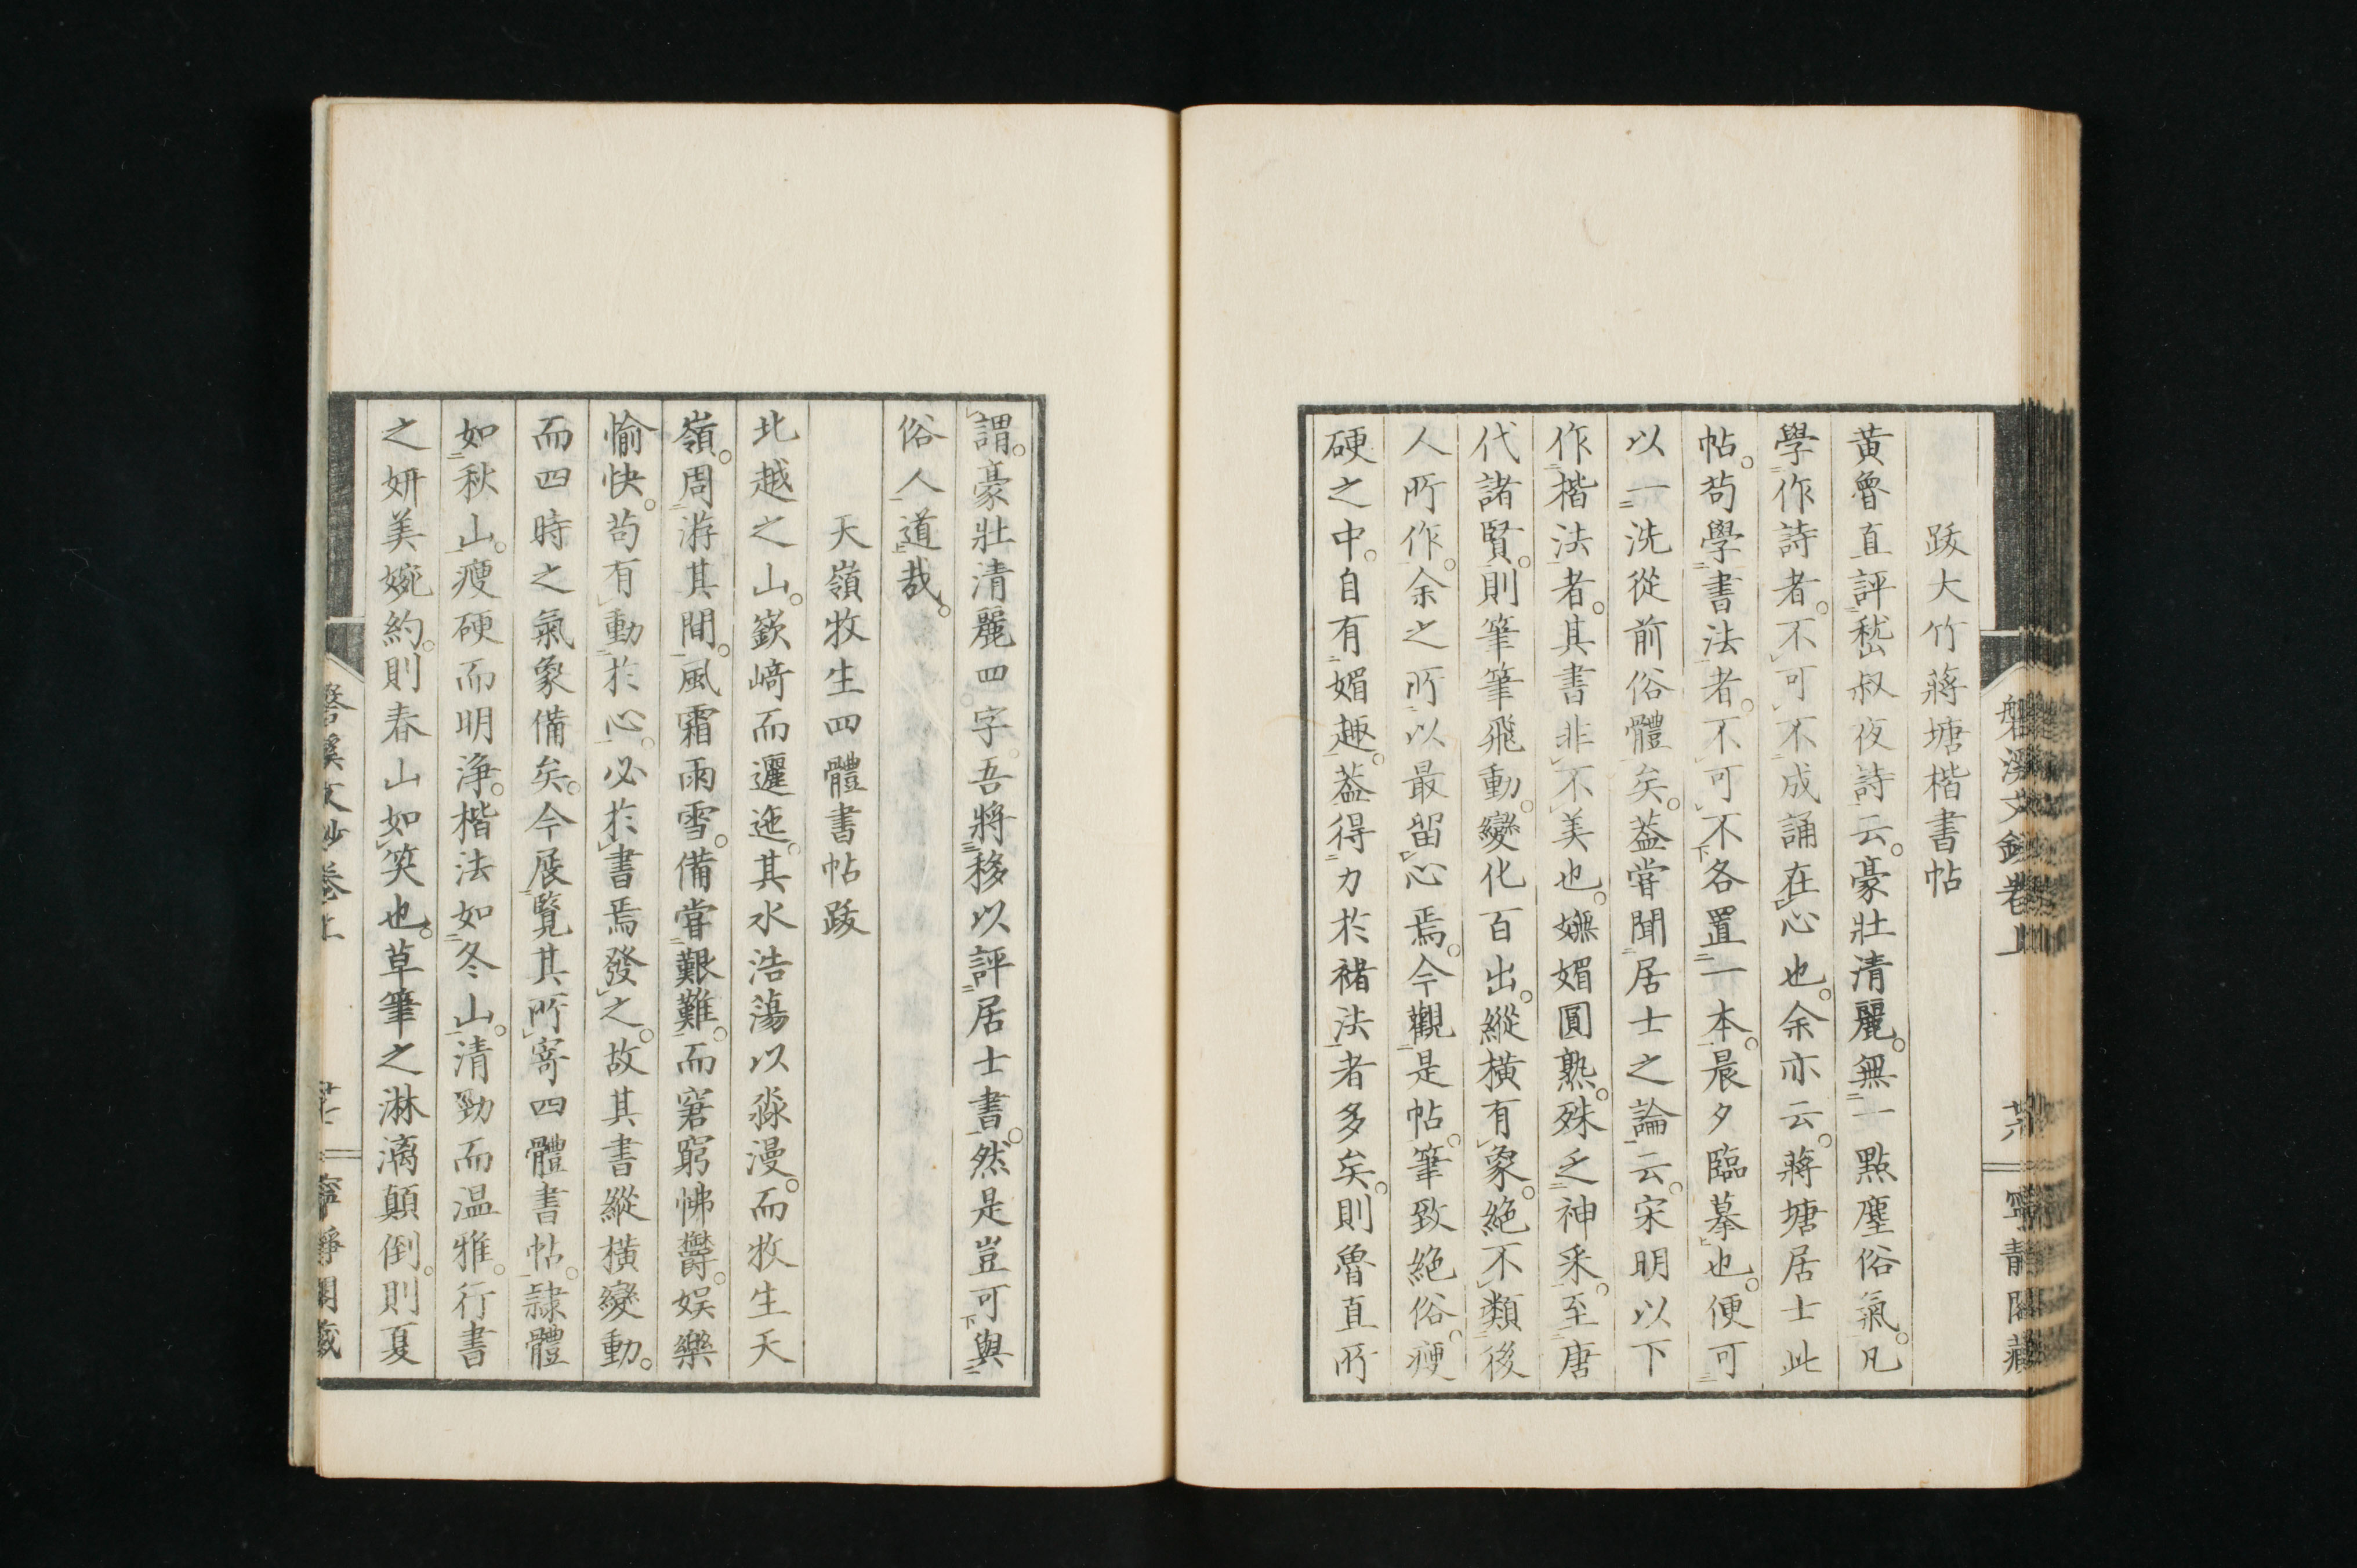 磐溪文鈔卷上
寧靜閣藏
跋大竹蔣塘楷書帖
黃魯直評嵇叔夜詩云。豪壯清麗。無一點塵俗氣。凡
學作詩者。不可不成誦在心也。余亦云。蔣塘居士此
帖。苟學書法者。不可不各置一本。晨夕臨摹也。便可
以一洗從前俗體矣。葢嘗聞居士之論云。宋明以下
作楷法者。其書非不美也。嫵媚圓熟。殊乏神采。至唐
代諸賢。則筆筆飛動。變化百出。縱橫有象。絶不類後
人所作。余之所以最留心焉。今觀是帖。筆致絶俗。瘦
硬之中。自有媚趣。葢得力於褚法者多矣。則魯直所
謂。豪壯清麗四字。吾將移以評居士書。然是豈可與
俗人道哉。
天嶺牧生四體書帖跋
北越之山。嶔﨑而邐迤。其水浩蕩以淼漫。而牧生天
嶺。周游其間。風霜雨雪。備嘗艱難。而窘窮怫鬱。娯樂
愉快。苟有動於心。必於書焉發之。故其書縱橫變動。
而四時之氣象備矣。今展覽其所寄四體書帖。隷體
如秋山。瘦硬而明浄。楷法如冬山。清勁而温雅。行書
之妍美婉約。則春山如笑也。草筆之淋漓顛倒。則夏
磐溪文鈔卷上
寧靜閣藏